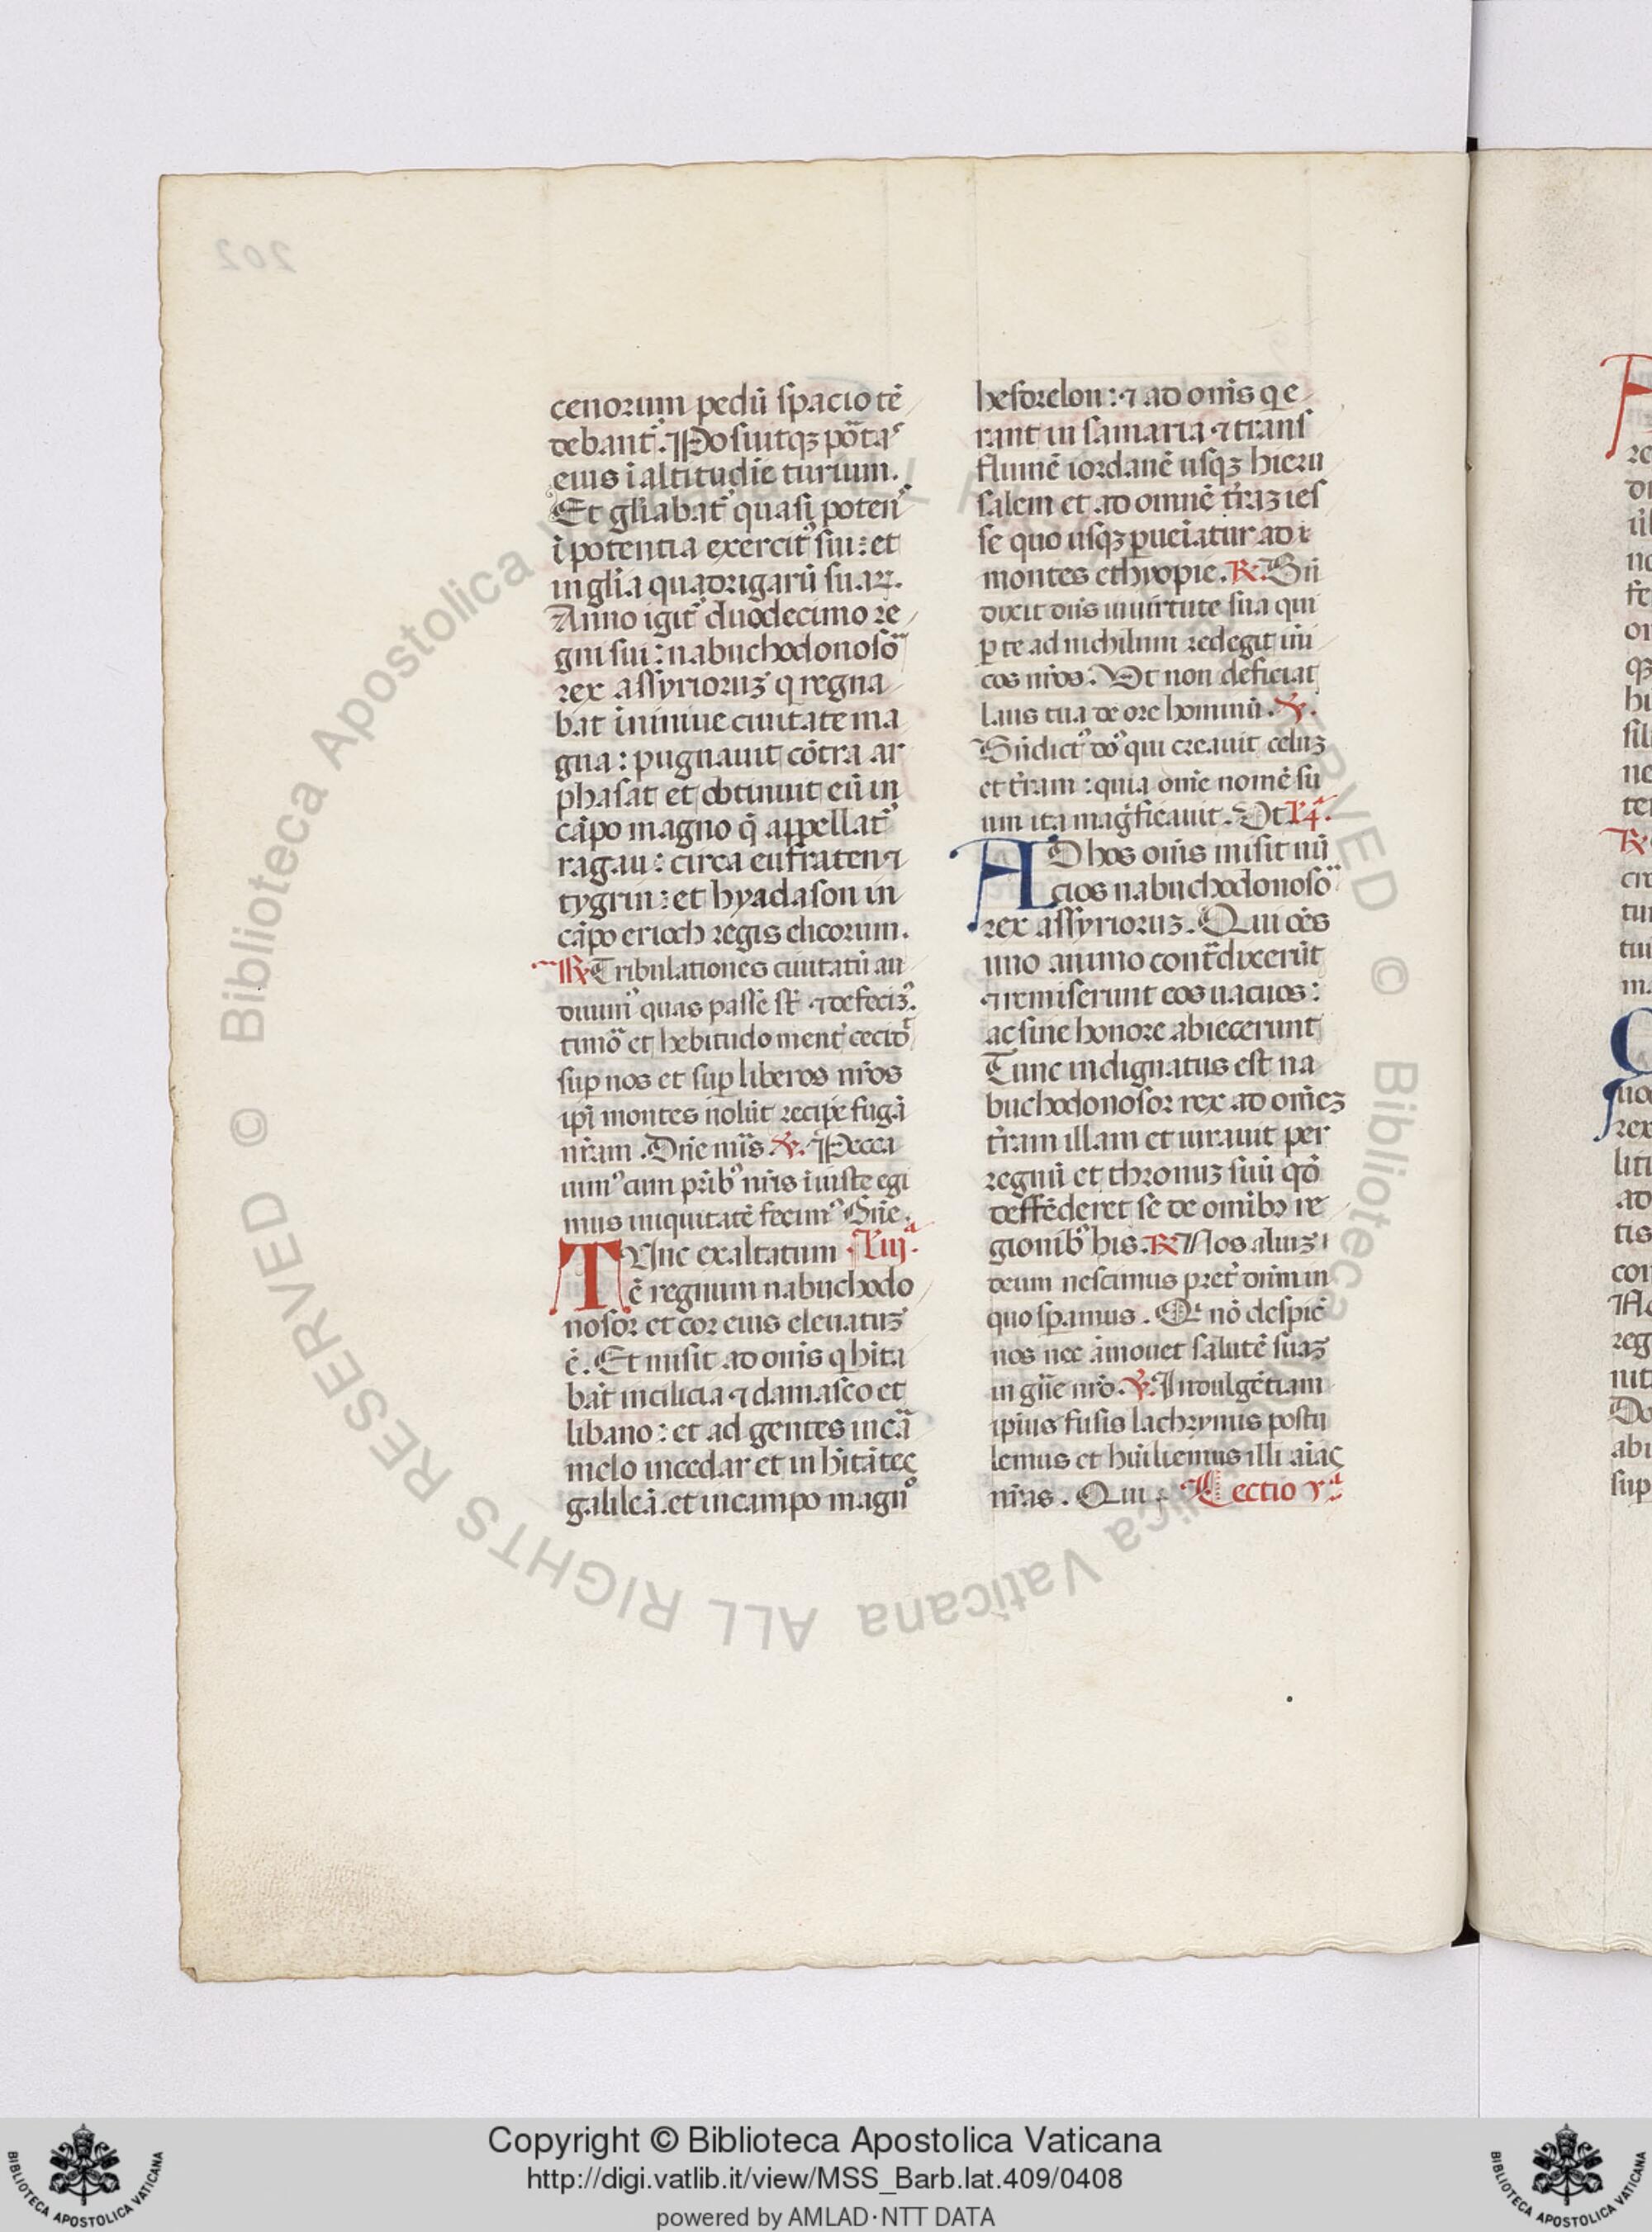 cenorum pedū spacio tē
debant᷑. Posuitqꝫ põtas
eius ī altitudīe turium.
Et gliabat᷑ quasi poten᷒
ī potentia exercit᷒ sui: et
in glīa quadrigarū suaꝝ.
Anno igit᷑ duodecimo re
gni sui: nabuchodonosõ
rex assyrioruꝫ q regna
bat ī niniue ciuitate ma
gna: pugnauit cōtra ar
phasat et obtinuit eū in
cāpo magno q̄ appellat᷑
ragau: circa eufraten ⁊
tygrin: et hyadason in
cāpo erioch regis elicorum.
℟ Tribulationes ciuitatū au
diuim᷒ quas passē st̄ ⁊ defeciꝫ᷒.
timõ et hebitudo ment᷑ cecid̃
sup nos et sup liberos nr̄os
ip̄i montes nolūt recipe fugā
nr̄am. Dn̄e mīs. ℣. Pecca
uim᷒ cum prib᷒ nr̄is īiuste egi
mus iniquitatē fecim᷒ Dn̄e.
TUnc exaltatum Liiij.ª
ē regnum nabuchodo
nosor et cor eius eleuatuꝫ
ē. Et misit ad om̄s q hīta
bāt in cilicia ⁊ damasco et
libano: et ad gentes in cã
melo in cedar et inhitātes
galileā. et in campo magn᷒
hesdrelon: ⁊ ad om̄s q e
rant in samaria ⁊ trans
flumē iordanē usqꝫ hieru
salem et ad omnē tr̄aꝫ ies
se quo usqꝫ pueīatur ad i
montes ethyopie. ℟. Bn̄
dixit dn̄s in uirtute sua qui
p te ad nichilum redegit ini
cos nr̄os. Ut non deficiat
laus tua de ore hominū. ℣.
Bn̄dict᷒ do᷒ qui creauit celuꝫ
et tr̄am: quia om̄e nomē su
um ita mag᷑ficauit. Ut L4ª.
AD hos om̄s misit nū
cios nabuchodonosõ
rex assyrioruꝫ. Qui oēs
uno animo contᷓdixerūt
⁊ remiserunt eos uacuos:
ac sine honore abiecerunt
Tunc indignatus est na
buchodonosor rex ad om̄eꝫ
tr̄am illam et iurauit per
regnū et thronuꝫ suū qō
deffēderet se de omībꝫ re
gionib᷒ his. ℟ Nos aliuꝫ
deum nescimus pret᷑ dn̄m in
quo spamus. Q nō despic̄
nos nec āmouet salutē suaꝫ
in gn̄e nr̄o. ℣. Indulgētiam
ip̄ius fusis lachrymis postu
lemus et hūiliemus illi aīas
nr̄as. Qui. Lectio vª